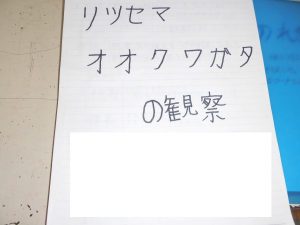 リツセマ
オオクワガタ
の観察